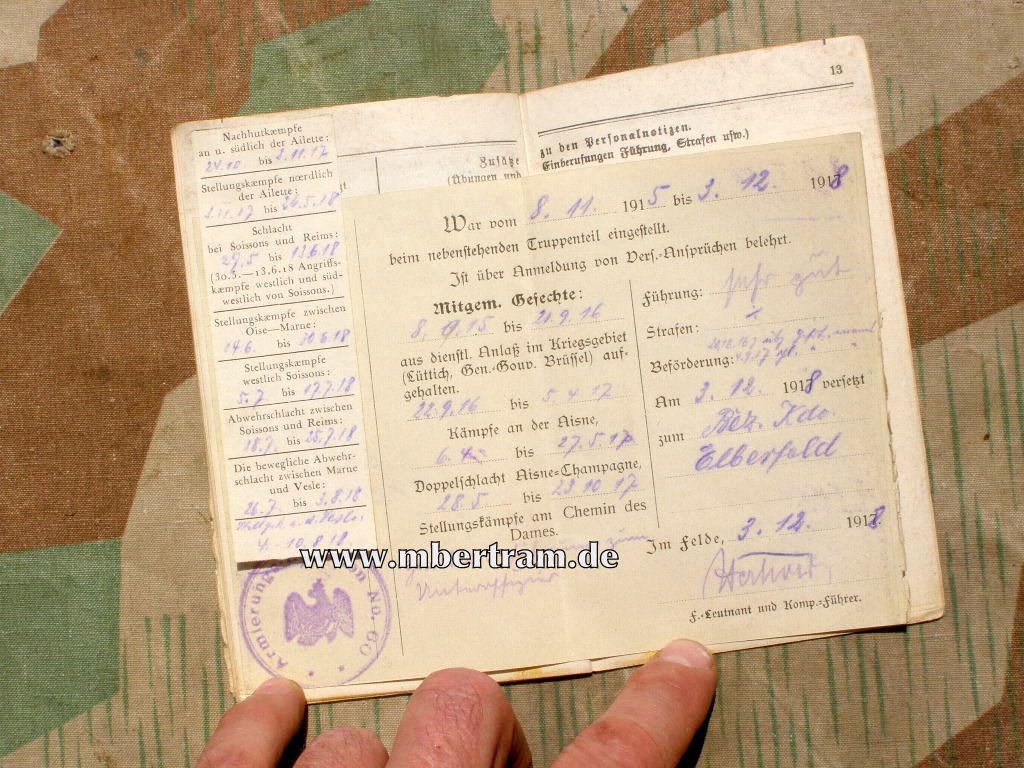 13
zu den Personalnotizen.
Einberufungen Führung, Strafen usw.)
Zusätze
(Übungen und
Nachhutkæmpfe
an u. südlich der Ailette:
24.10 bis 2.11.17
Stellungskæmpfe nœrdlich
der Ailette:
3.11.17 bis 26.5.18
Schlacht
bei Soissons und Reims:
27.5 bis 13.6.18
(30.5.—13.6.18 Angriffs-
kæmpfe westlich und süd-
westlich von Soissons.)
Stellungskæmpfe zwischen
Oise—Marne:
14.6. bis 30.6.18
Stellungskæmpfe
westlich Soissons:
5.7. bis 17.7.18
Abwehrschlacht zwischen
Soissons und Reims:
18.7. bis 25.7.18
Die bewegliche Abwehr-
schlacht zwischen Marne
und Vesle:
26.7. bis 3.8.18
4.-10.8.18.
War vom 8. 11. 1915 bis 3. 12. 1918
beim nebenstehenden Truppenteil eingestellt.
Ist über Anmeldung von Vers.-Ansprüchen belehrt.
Mitgem. Gefechte:
8. 9.15 bis 21.9.16
aus dienstl. Anlaß im Kriegsgebiet
(Lüttich, Gen.-Gouv. Brüssel) auf-
gehalten.
22.9.16 bis 5.4.17
Kämpfe an der Aisne,
6.4. bis 27.5.17
Doppelschlacht Aisne-Champagne,
28.5 bis 23 10 17
Stellungskämpfe am Chemin des
Dames.
Unteroffizier
Führung: sehr gut
Strafen:
Beförderung:
Am 3. 12. 1918 versetzt
zum Bez. Kdo.
Elberfeld
Im Felde, 3. 12. 1918.
F.-Leutnant und Komp.-Führer.
Armierungs No. 60
www.mbertram.de